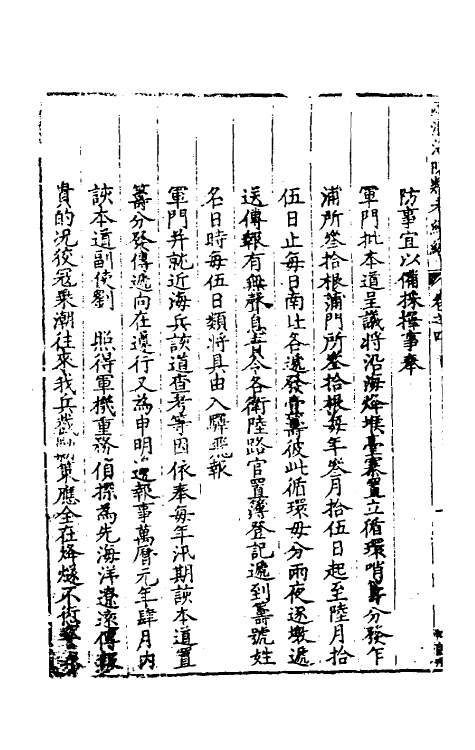 兩浙海防類考續編 卷之四
防事宜以備採擇事奉
軍門批本道呈議將沿海烽堠臺寨置立循環哨籌分發乍
浦所叁拾根蒲門所叁拾根每年叁月拾伍日起至陸月拾
伍日止每日南北各遞發壹籌彼此循環毋分雨夜逐墩遞
送傳報有無聲息官令各衛陸路官置簿登記遞到籌號姓
名日時每伍日類將具由入驛飛報
軍門并就近海兵該道查考等因依奉每年汛期該本道置
籌分發傳遞向在遵行又為申明遞報事萬曆元年肆月內
該本道副使劉 照得軍機重務偵探為先海洋遼遠傳報
貴的況後寇乘潮往來我兵截勦策應全在烽燧不術